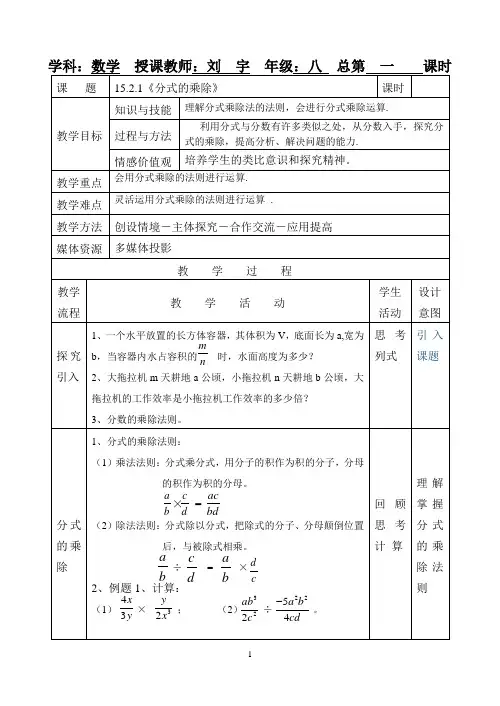 学科：数学 授课教师：刘 宇 年级：八 总第 一 课时
课 题 15.2.1《分式的乘除》 课时
教学目标 知识与技能 理解分式乘除法的法则，会进行分式乘除运算.
过程与方法 利用分式与分数有许多类似之处，从分数入手，探究分
式的乘除，提高分析、解决问题的能力.
情感价值观 培养学生的类比意识和探究精神。
教学重点 会用分式乘除的法则进行运算.
教学难点 灵活运用分式乘除的法则进行运算 .
教学方法 创设情境－主体探究－合作交流－应用提高
媒体资源 多媒体投影
教 学 过 程
教学
流程
教 学 活 动
学生
活动
设计
意图
探究
引入
1、一个水平放置的长方体容器，其体积为 V，底面长为 a,宽为
b，当容器内水占容积的 m/n 时，水面高度为多少？
2、大拖拉机 m 天耕地 a 公顷，小拖拉机 n 天耕地 b 公顷，大
拖拉机的工作效率是小拖拉机工作效率的多少倍？
3、分数的乘除法则。
思 考
列式
引 入
课题
分 式
的 乘
除
1、分式的乘除法则：
（1）乘法法则：分式乘分式，用分子的积作为积的分子，分母
的积作为积的分母。
a/b × c/d = ac/bd
（2）除法法则：分式除以分式，把除式的分子、分母颠倒位置
后，与被除式相乘。
a/b ÷ c/d = a/b × d/c
2、例题 1、计算：
（1） 4x/3y × y/2x³ ； （2） ab³/2c² ÷ −5a²b²/4cd 。
回 顾
思 考
计 算
理 解
掌 握
分 式
的 乘
除 法
则
1